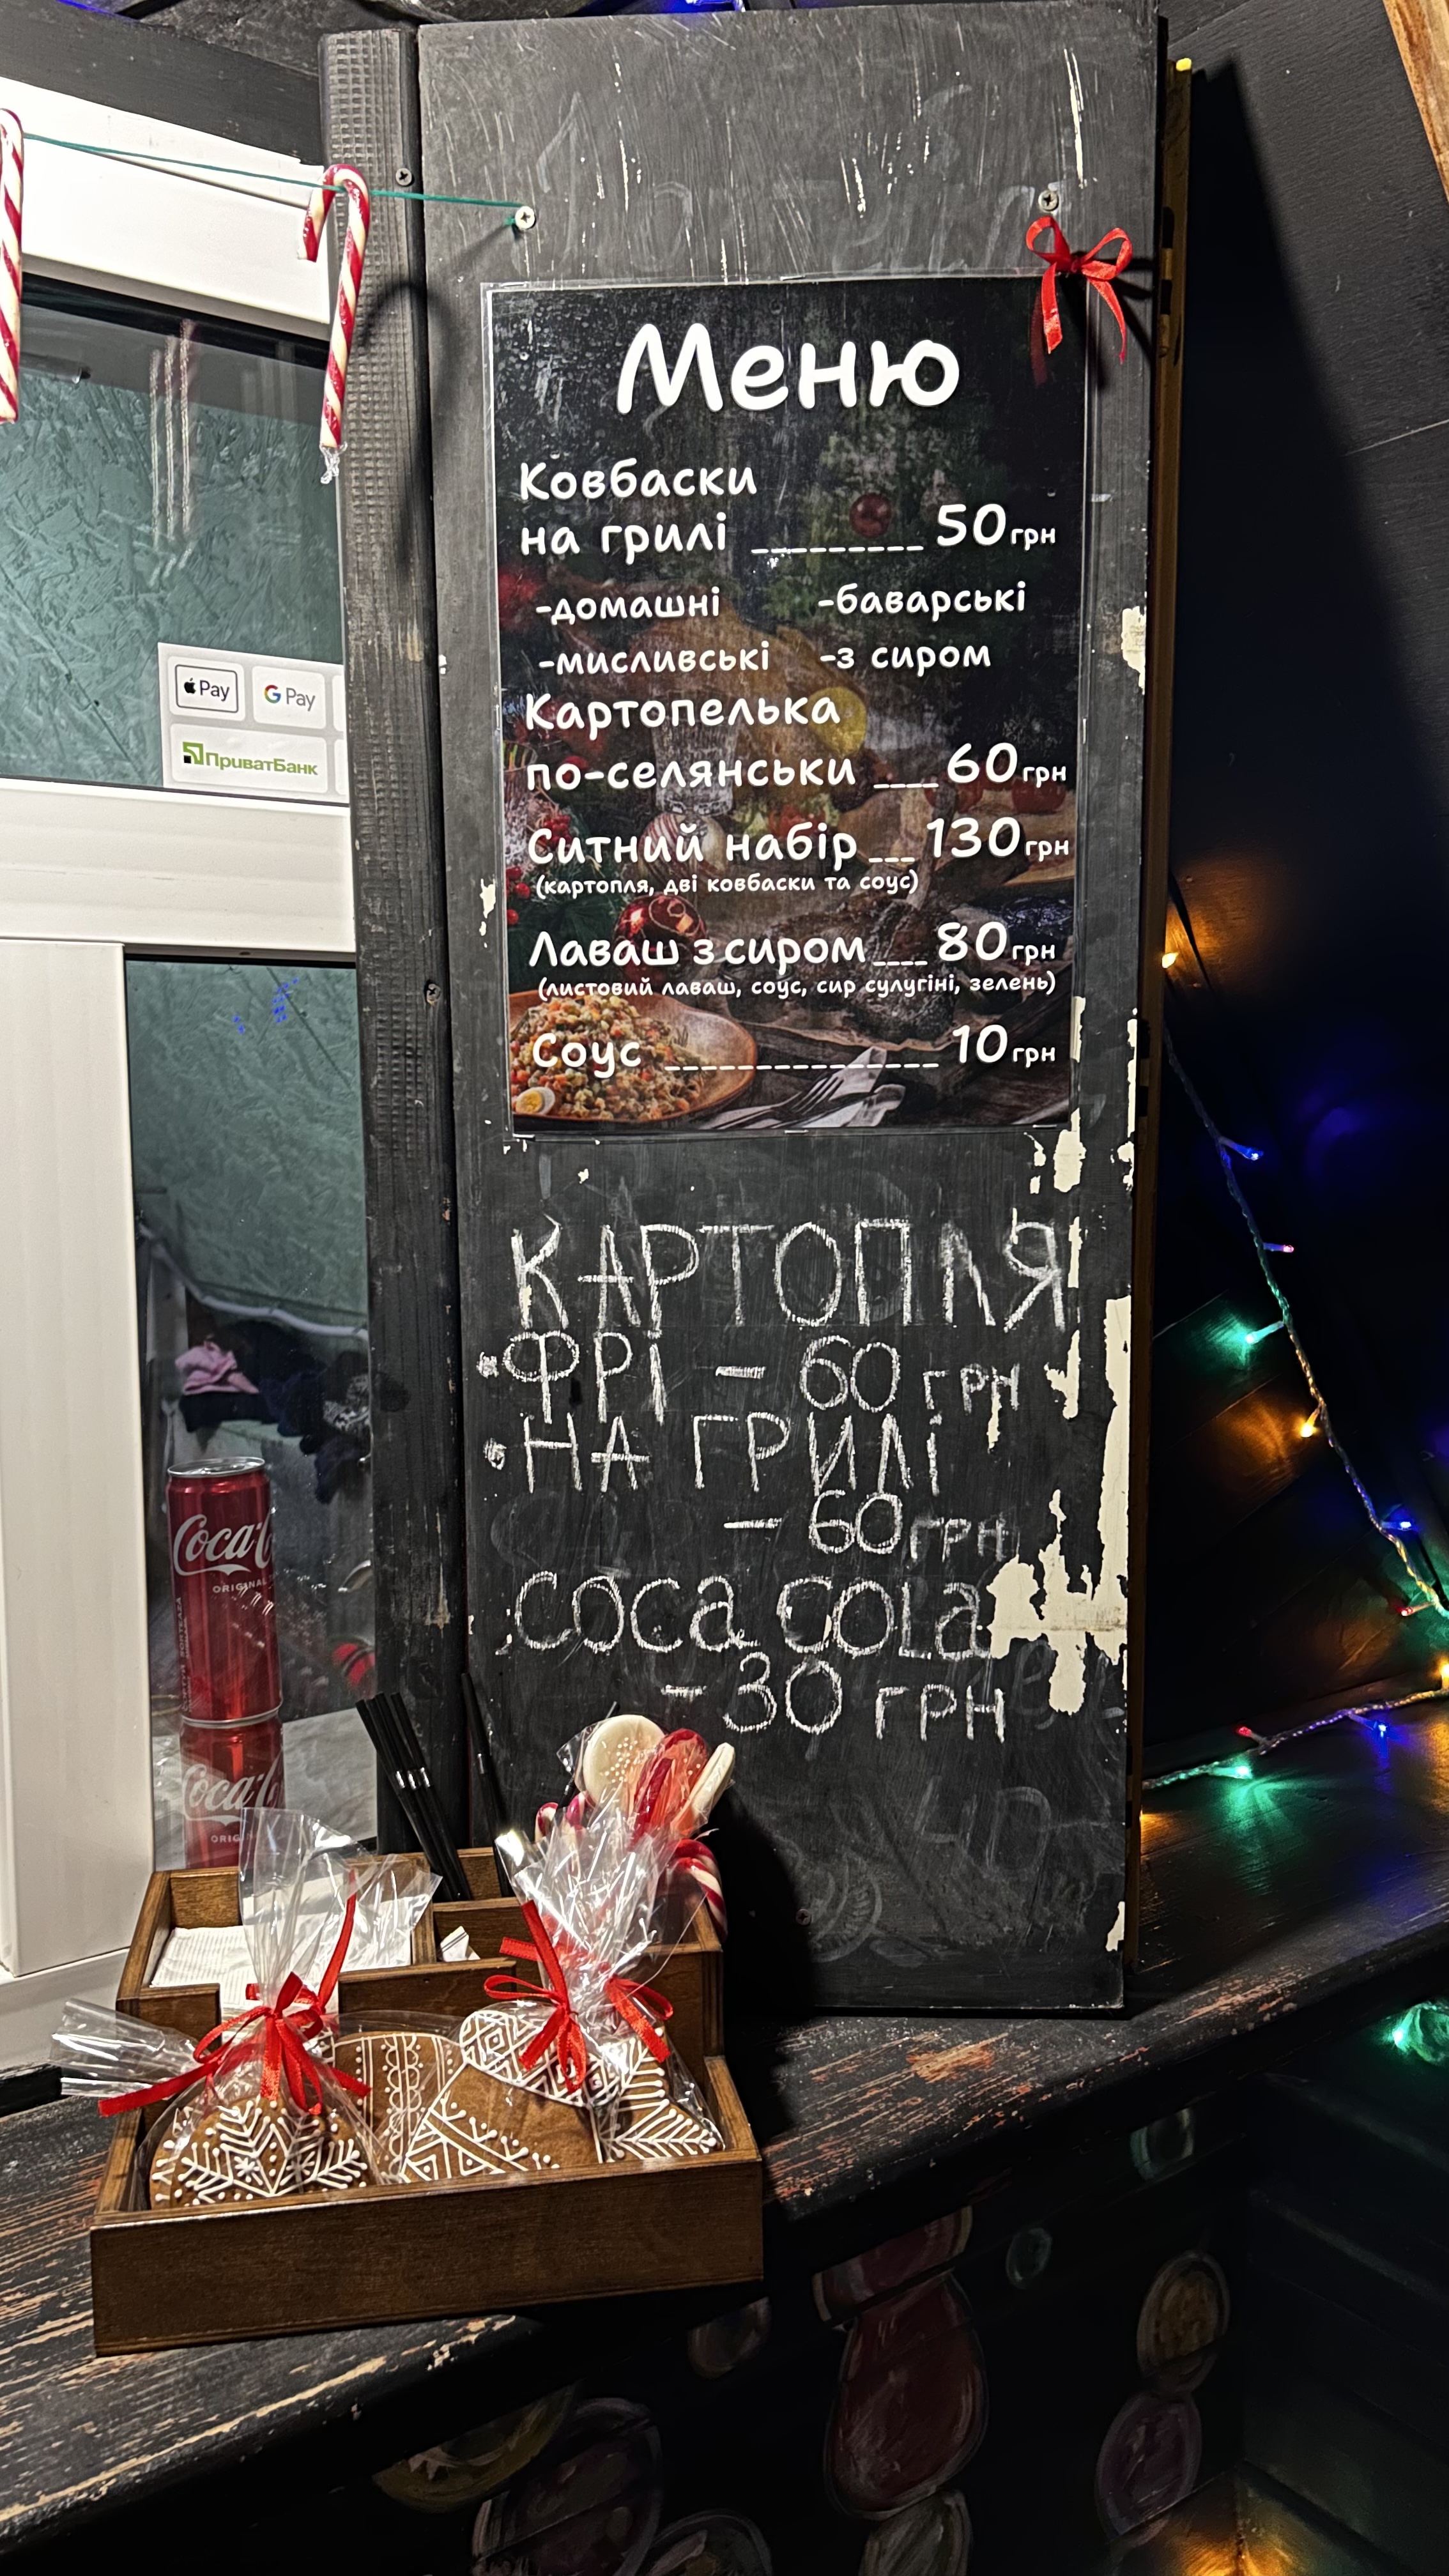 Меню
Ковбаски
на грилі _________ 50 грн
-домашні -баварські
-мисливські -з сиром
Картопелька
по-селянськи ____ 60 грн
Ситний набір ___ 130 грн
(картопля, дві ковбаски та соус)
Лаваш з сиром ____ 80 грн
(листовий лаваш, соус, сир сулугіні, зелень)
Соус _______________ 10 грн
КАРТОПЛЯ
•ФРІ - 60 ГРН
•НА ГРИЛІ
- 60 ГРН
COCA COLA
- 30 ГРН
Pay
G Pay
ПриватБанк
Coca-C
ORIGINAL
Coca-C
ORIG